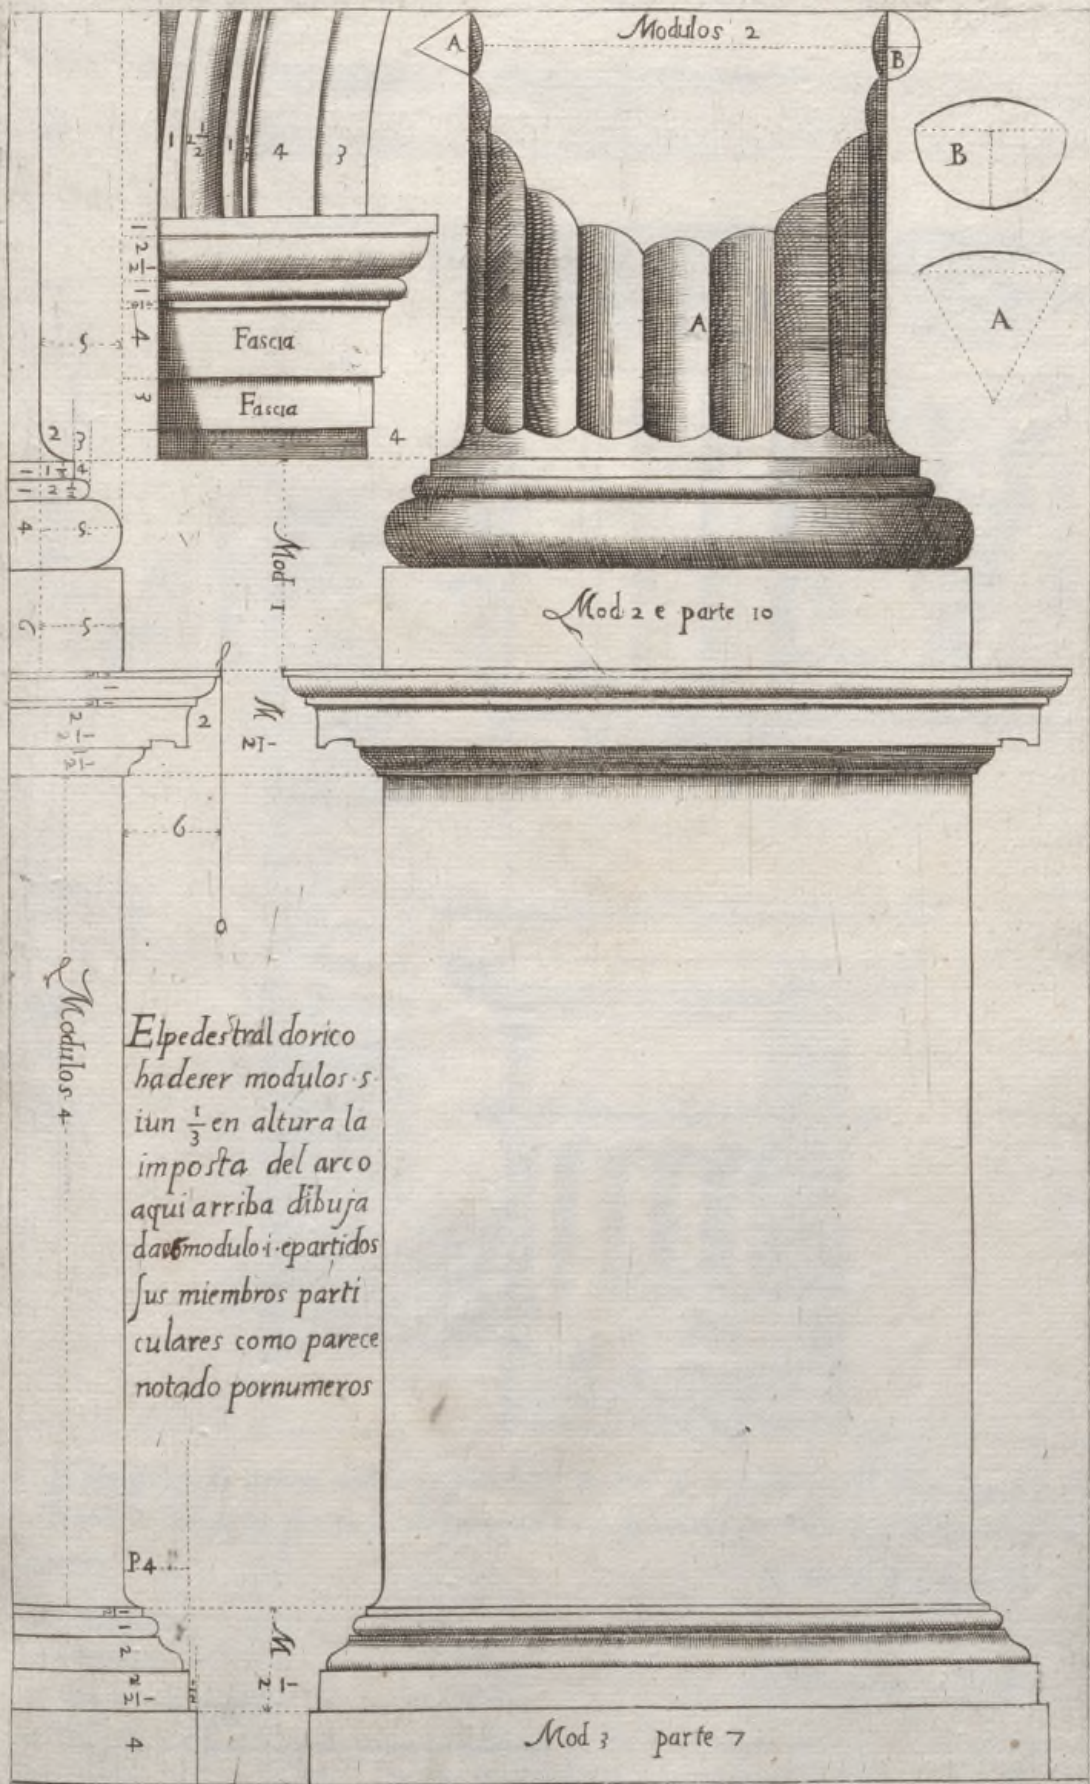 Modulos 2
A
B
B
A
A
1 2 1/2 1 1/2 4 3
1
2 1/2
1
1/2
4
3
Fascia
Fascia
4
5
2 3
1 1 1/2 4
1 2 1/2
4 5
6 5
Mod 1
Mod 2 e parte 10
M 1/2
1
2 1/2
1 1/2
2
6
Modulos 4
El pedestral dorico
ha de ser modulos · 5 ·
i un 1/3 en altura la
imposta del arco
aqui arriba dibuja
modulo · i · e partidos
sus miembros parti
culares como parece
notado por numeros
P. 4
1
1
2
2 1/2
4
M 1/2
Mod 3 parte 7